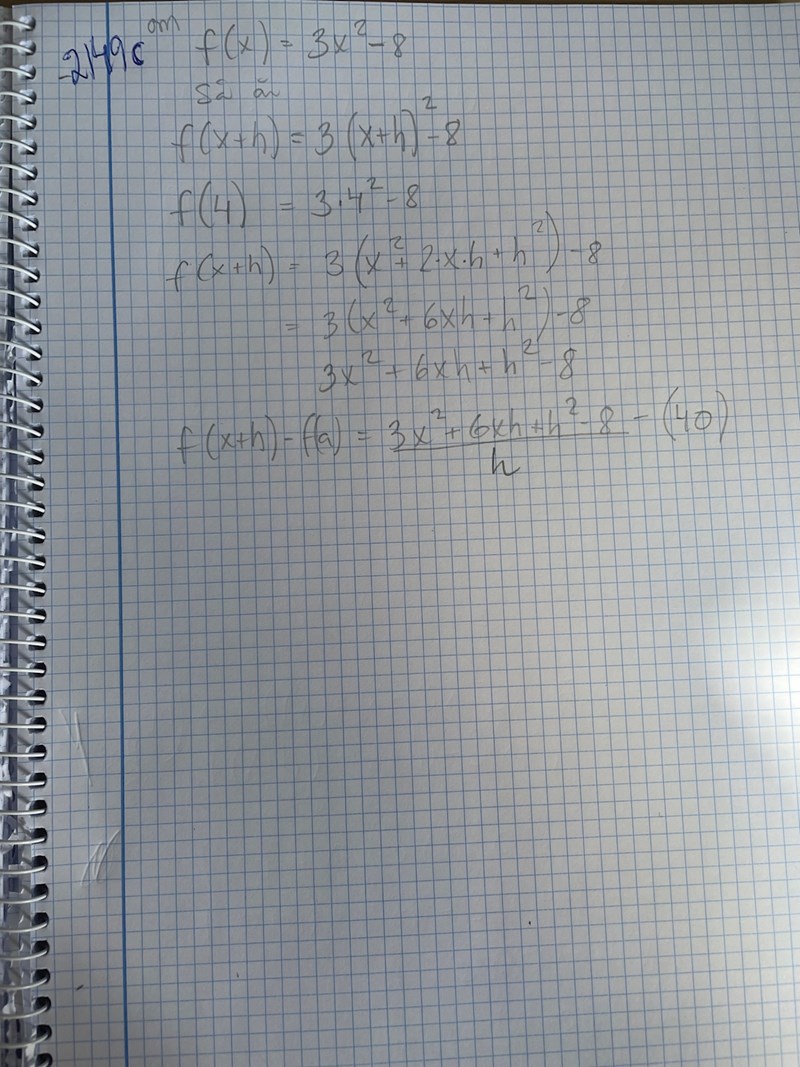 2149c om f(x) = 3x² - 8
så är
f(x+h) = 3(x+h)² - 8
f(4) = 3·4² - 8
f(x+h) = 3(x² + 2·x·h + h²) - 8
= 3(x² + 6xh + h²) - 8
3x² + 6xh + h² - 8
f(x+h) - f(a) = 3x² + 6xh + h² - 8 - (40)
h